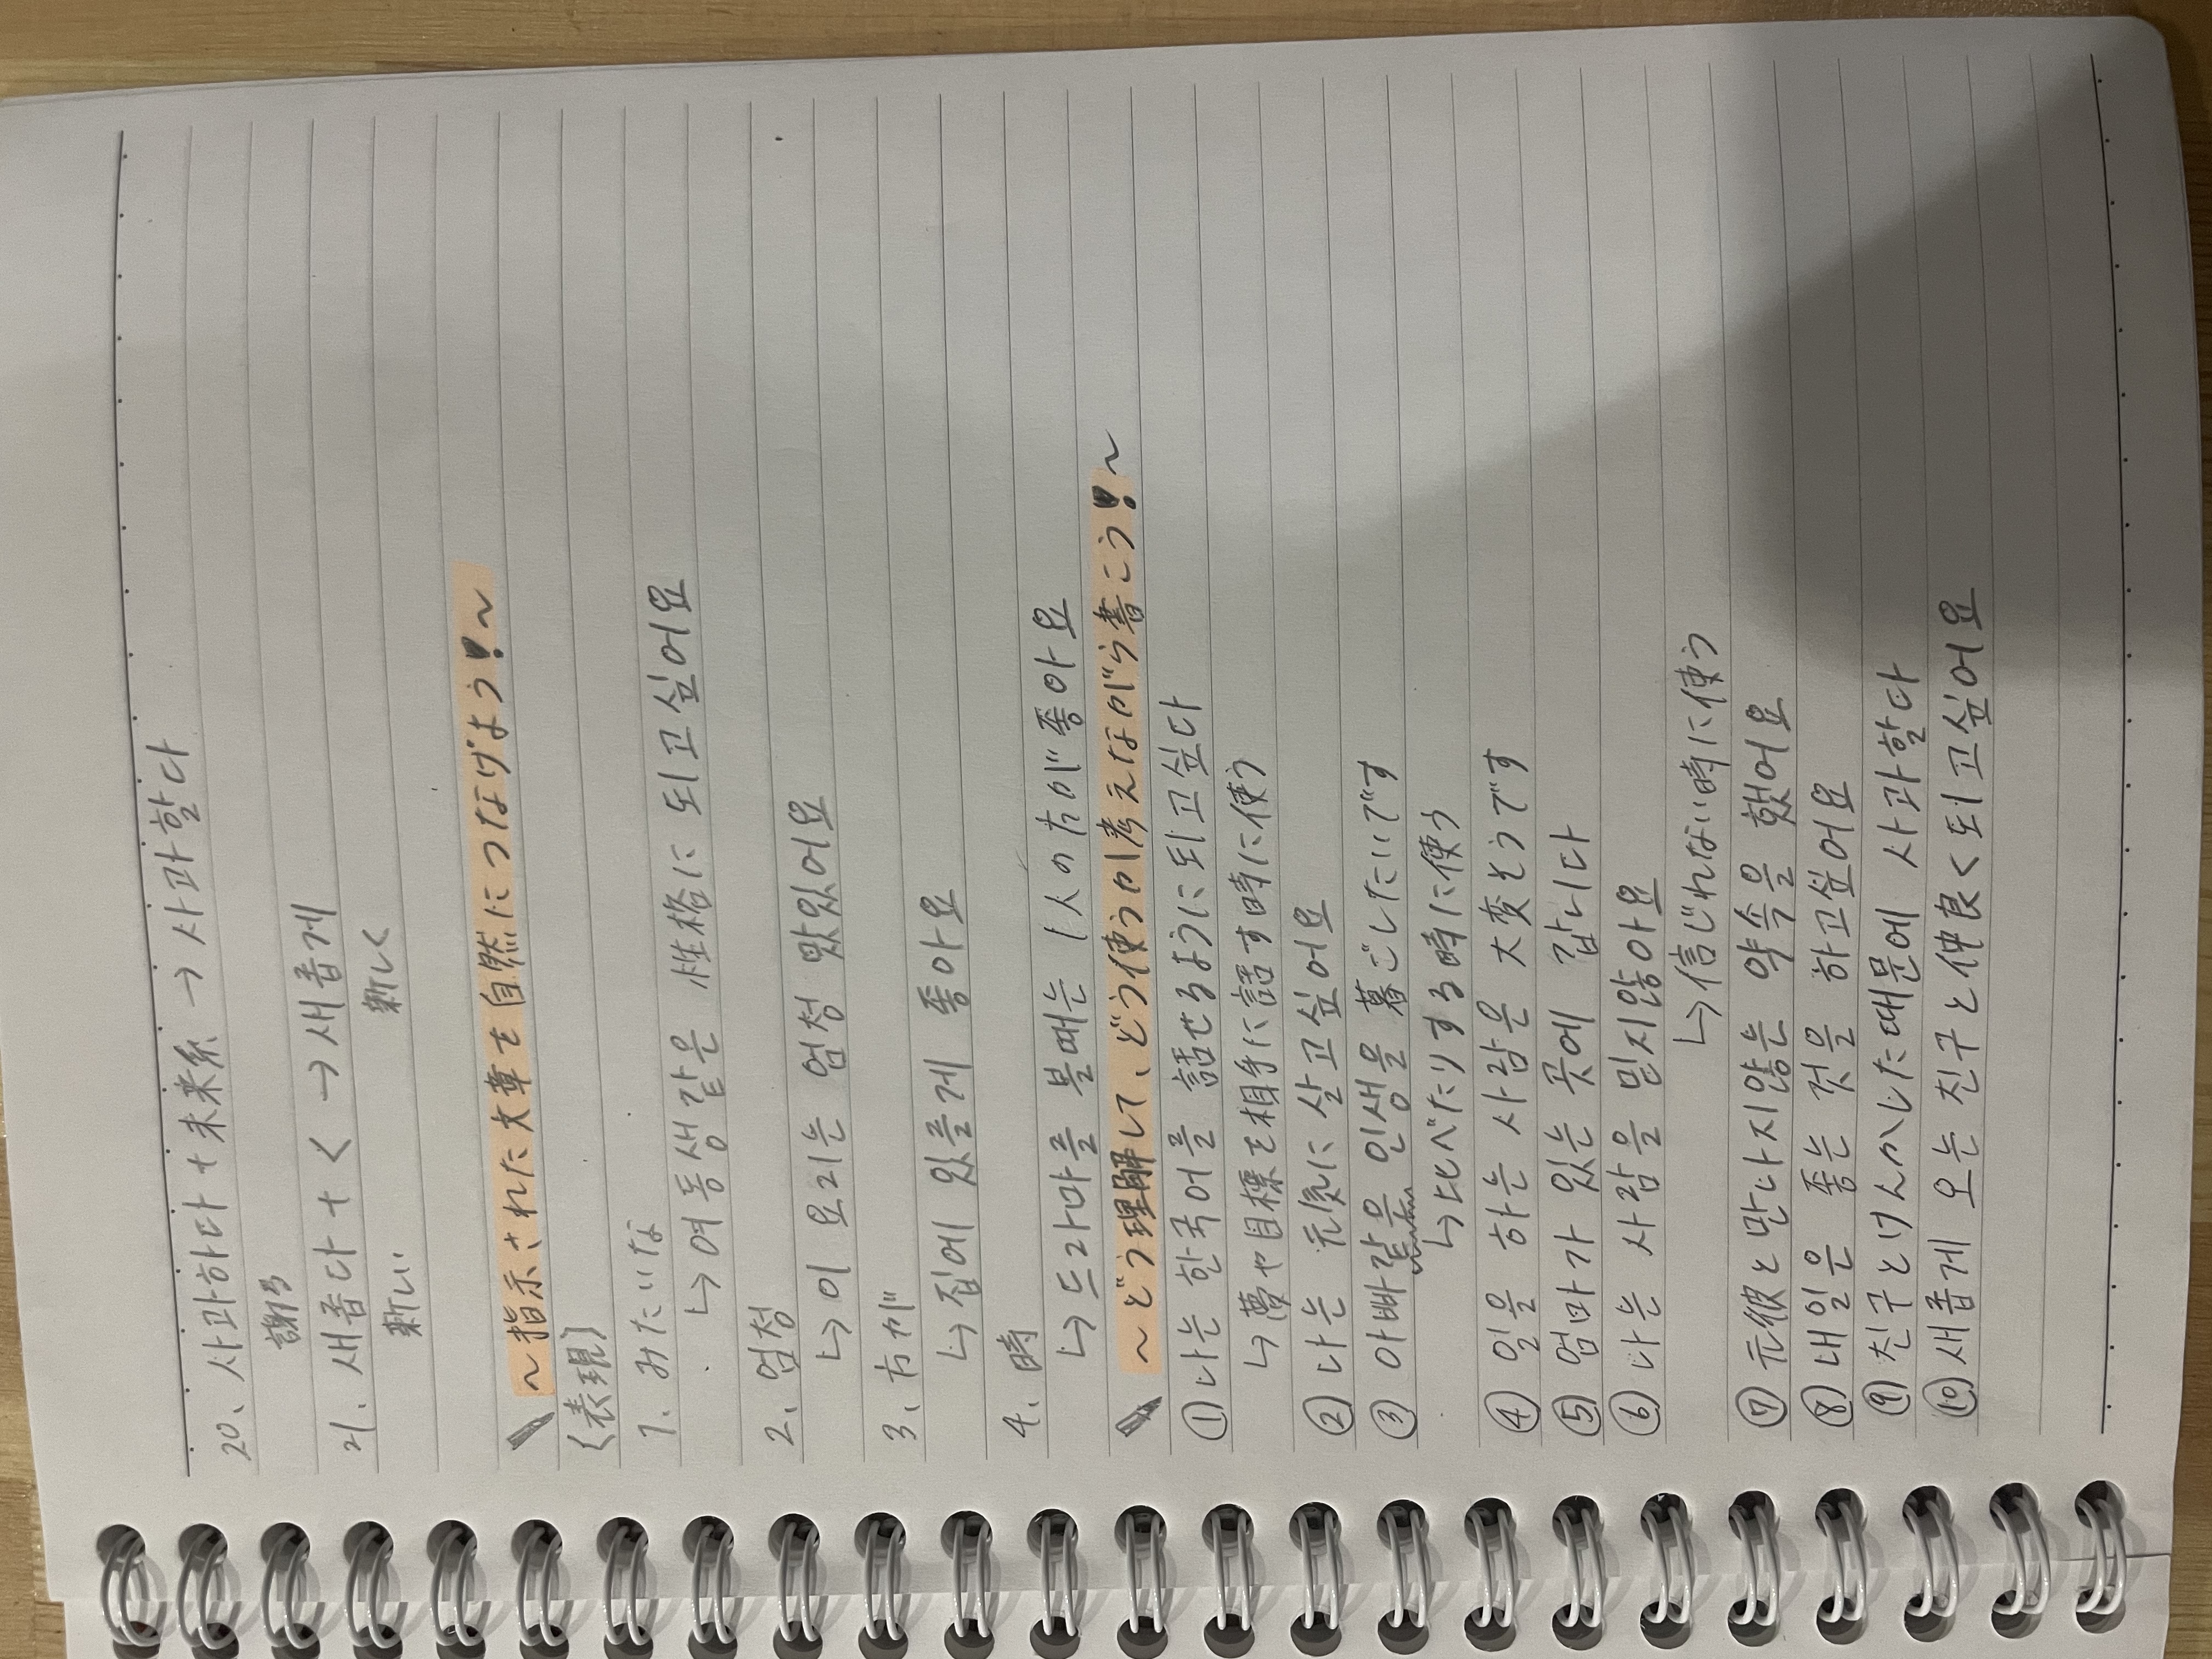 20、사과하다 + 未来系 → 사과할다
謝る
21. 새좁다 + く → 새좁게
新しい 新しく
~指示された文章を自然につなげよう!~
〈表現〉
1、みたいな
↳ 여동생 같은 性格に 되고싶어요
2、엄청
↳ 이 요리는 엄청 맜있어요
3、方が
↳ 집에 있을게 좋아요
4、時
↳ 드라마를 볼때는 1人の方が 좋아요
~どう理解して、どう使うか考えながら書こう!~
① 나는 한국어를 話せるように되고싶다
↳ 夢や目標を相手に話す時に使う
② 나는 元気に 살고싶어요
③ 아빠같은 인생을 暮ごしたいです
↳ 比べたりする時に使う
④ 일을 하는 사람은 大変そうです
⑤ 엄마가 있는 곳에 갑니다
⑥ 나는 사람을 믿지않아요
↳ 信じれない時に使う
⑦ 元彼と만나지않는 약속을 했어요
⑧ 내일은 좋는 것을 하고싶어요
⑨ 친구とけんかした때문에 사과할다
⑩ 새좁게 오는 친구と仲良く되고싶어요